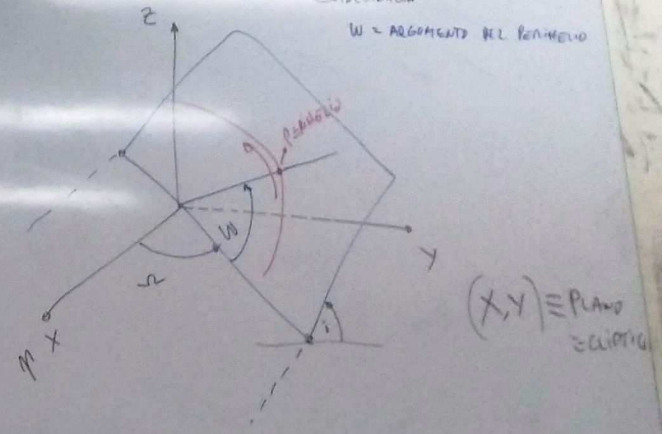 W = ARGOMENTO DEL PERIHELIO
Z
PERIHELIO
W
Ω
Y
i
X
(X,Y) ≡ PLANO
ECLIPTICA